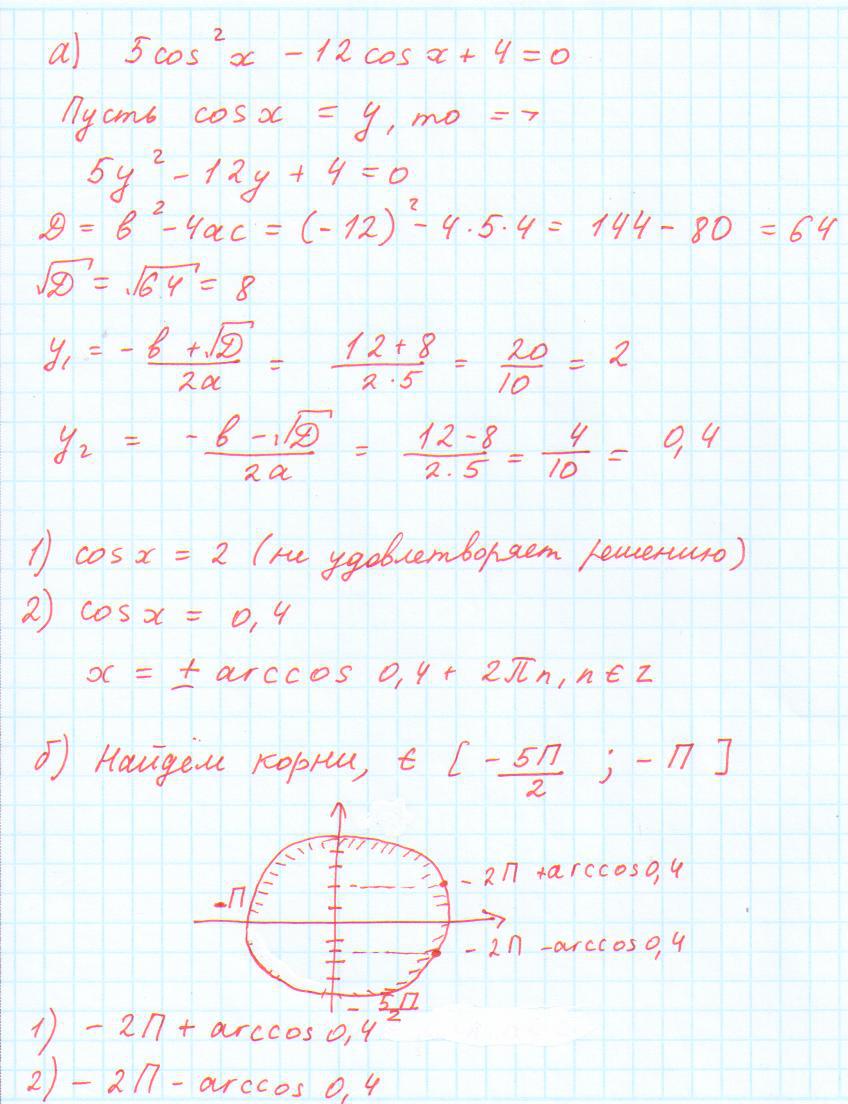 а) 5cos²x - 12cosx + 4 = 0
Пусть cosx = y, то =>
5y² - 12y + 4 = 0
D = b² - 4ac = (-12)² - 4·5·4 = 144 - 80 = 64
√D = √64 = 8
y₁ = -b + √D / 2a = 12+8 / 2·5 = 20/10 = 2
y₂ = -b - √D / 2a = 12-8 / 2·5 = 4/10 = 0,4
1) cosx = 2 (не удовлетворяет решению)
2) cosx = 0,4
x = ± arccos 0,4 + 2Пn, n ∈ Z
б) Найдём корни, ∈ [-5П/2 ; -П]
-2П + arccos0,4
-П
-2П - arccos0,4
-5П/2
1) -2П + arccos 0,4
2) -2П - arccos 0,4